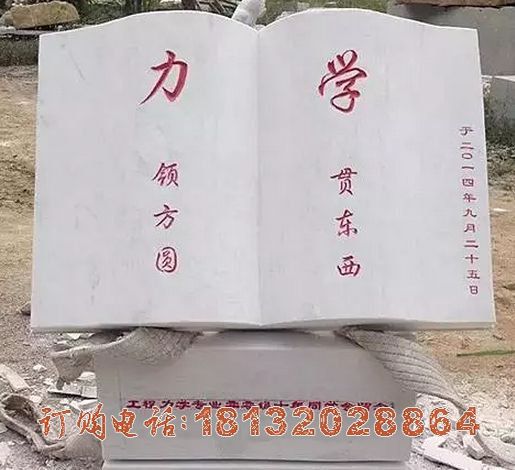 力领方圆
学贯东西
于二〇一四年九月二十五日
工程力学专业同学会
订购电话:18132028864